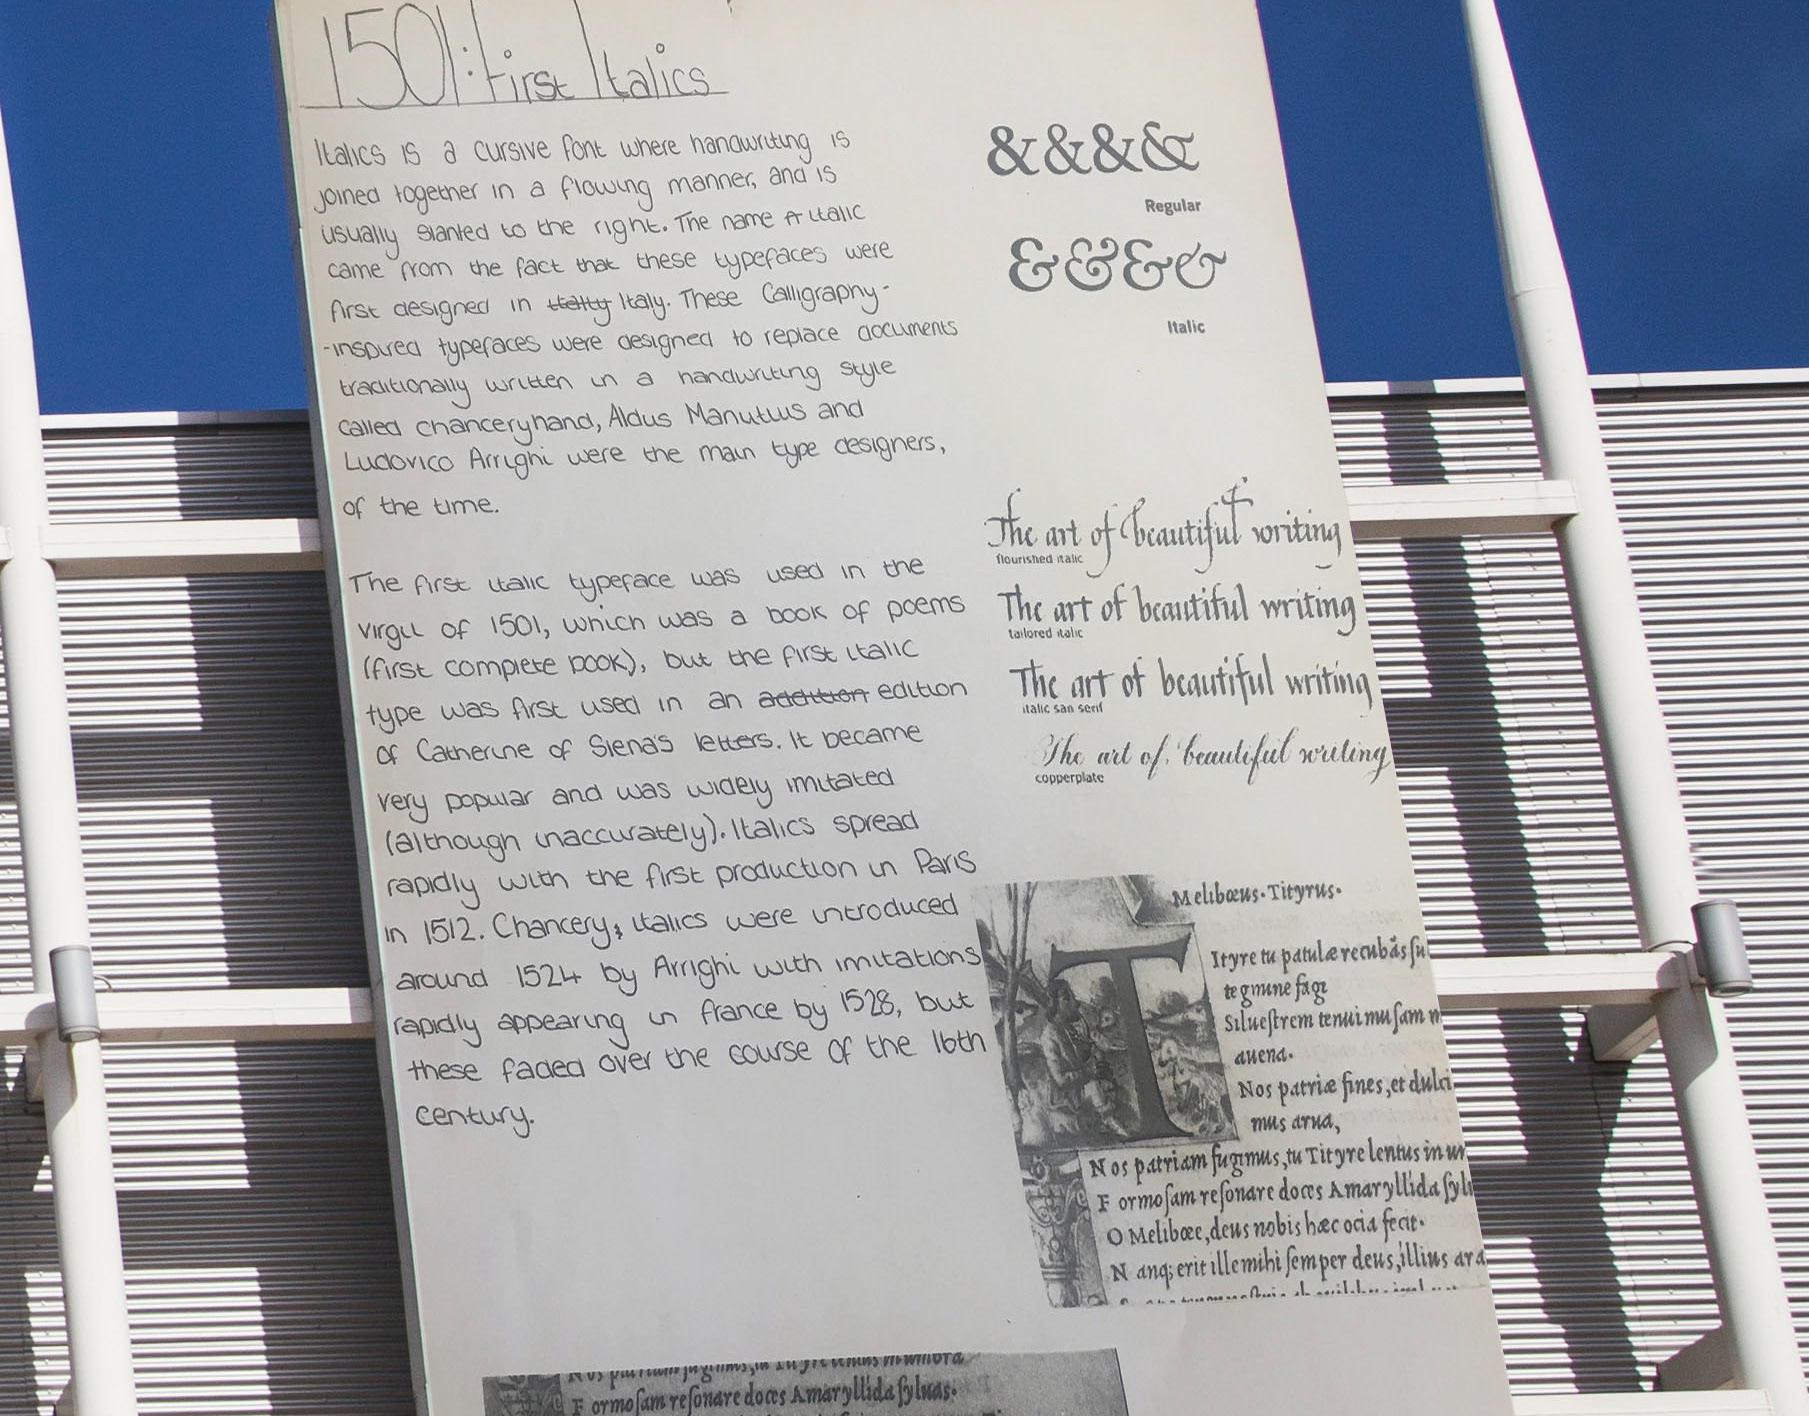 1501: First Italics
Italics is a cursive font where handwriting is
joined together in a flowing manner, and is
usually slanted to the right. The name italic
came from the fact that these typefaces were
first designed in Italy. These Calligraphy-
-inspired typefaces were designed to replace documents
traditionally written in a handwriting style
called chanceryhand, Aldus Manutius and
Ludovico Arrighi were the main type designers,
of the time.
The first italic typeface was used in the
virgil of 1501, which was a book of poems
(first complete book), but the first italic
type was first used in an addition edition
of Catherine of Siena's letters. It became
very popular and was widely imitated
(although inaccurately). Italics spread
rapidly with the first production in Paris
in 1512. Chancery, italics were introduced
around 1524 by Arrighi with imitations
rapidly appearing in france by 1528, but
these faded over the course of the 16th
century.
&&&&
Regular
&&&&
Italic
The art of beautiful writing
flourished italic
The art of beautiful writing
tailored italic
The art of beautiful writing
italic san serif
The art of beautiful writing
copperplate
Melibœus. Tityrus.
T
Ityre tu patulæ recubãs ſu
tegmine fagi
Silueſtrem tenui muſam
auena.
Nos patriæ fines, et dulci
mus arua,
Nos patriam fugimus, tu Tityre lentus in
Formoſam reſonare doces Amaryllida ſyl
O Melibœe, deus nobis hæc ocia fecit.
Nanq; erit ille mihi ſemper deus, illius ara
Nos patriam fugimus, tu Tityre lentus in umbra
Formoſam reſonare doces Amaryllida ſyluas.